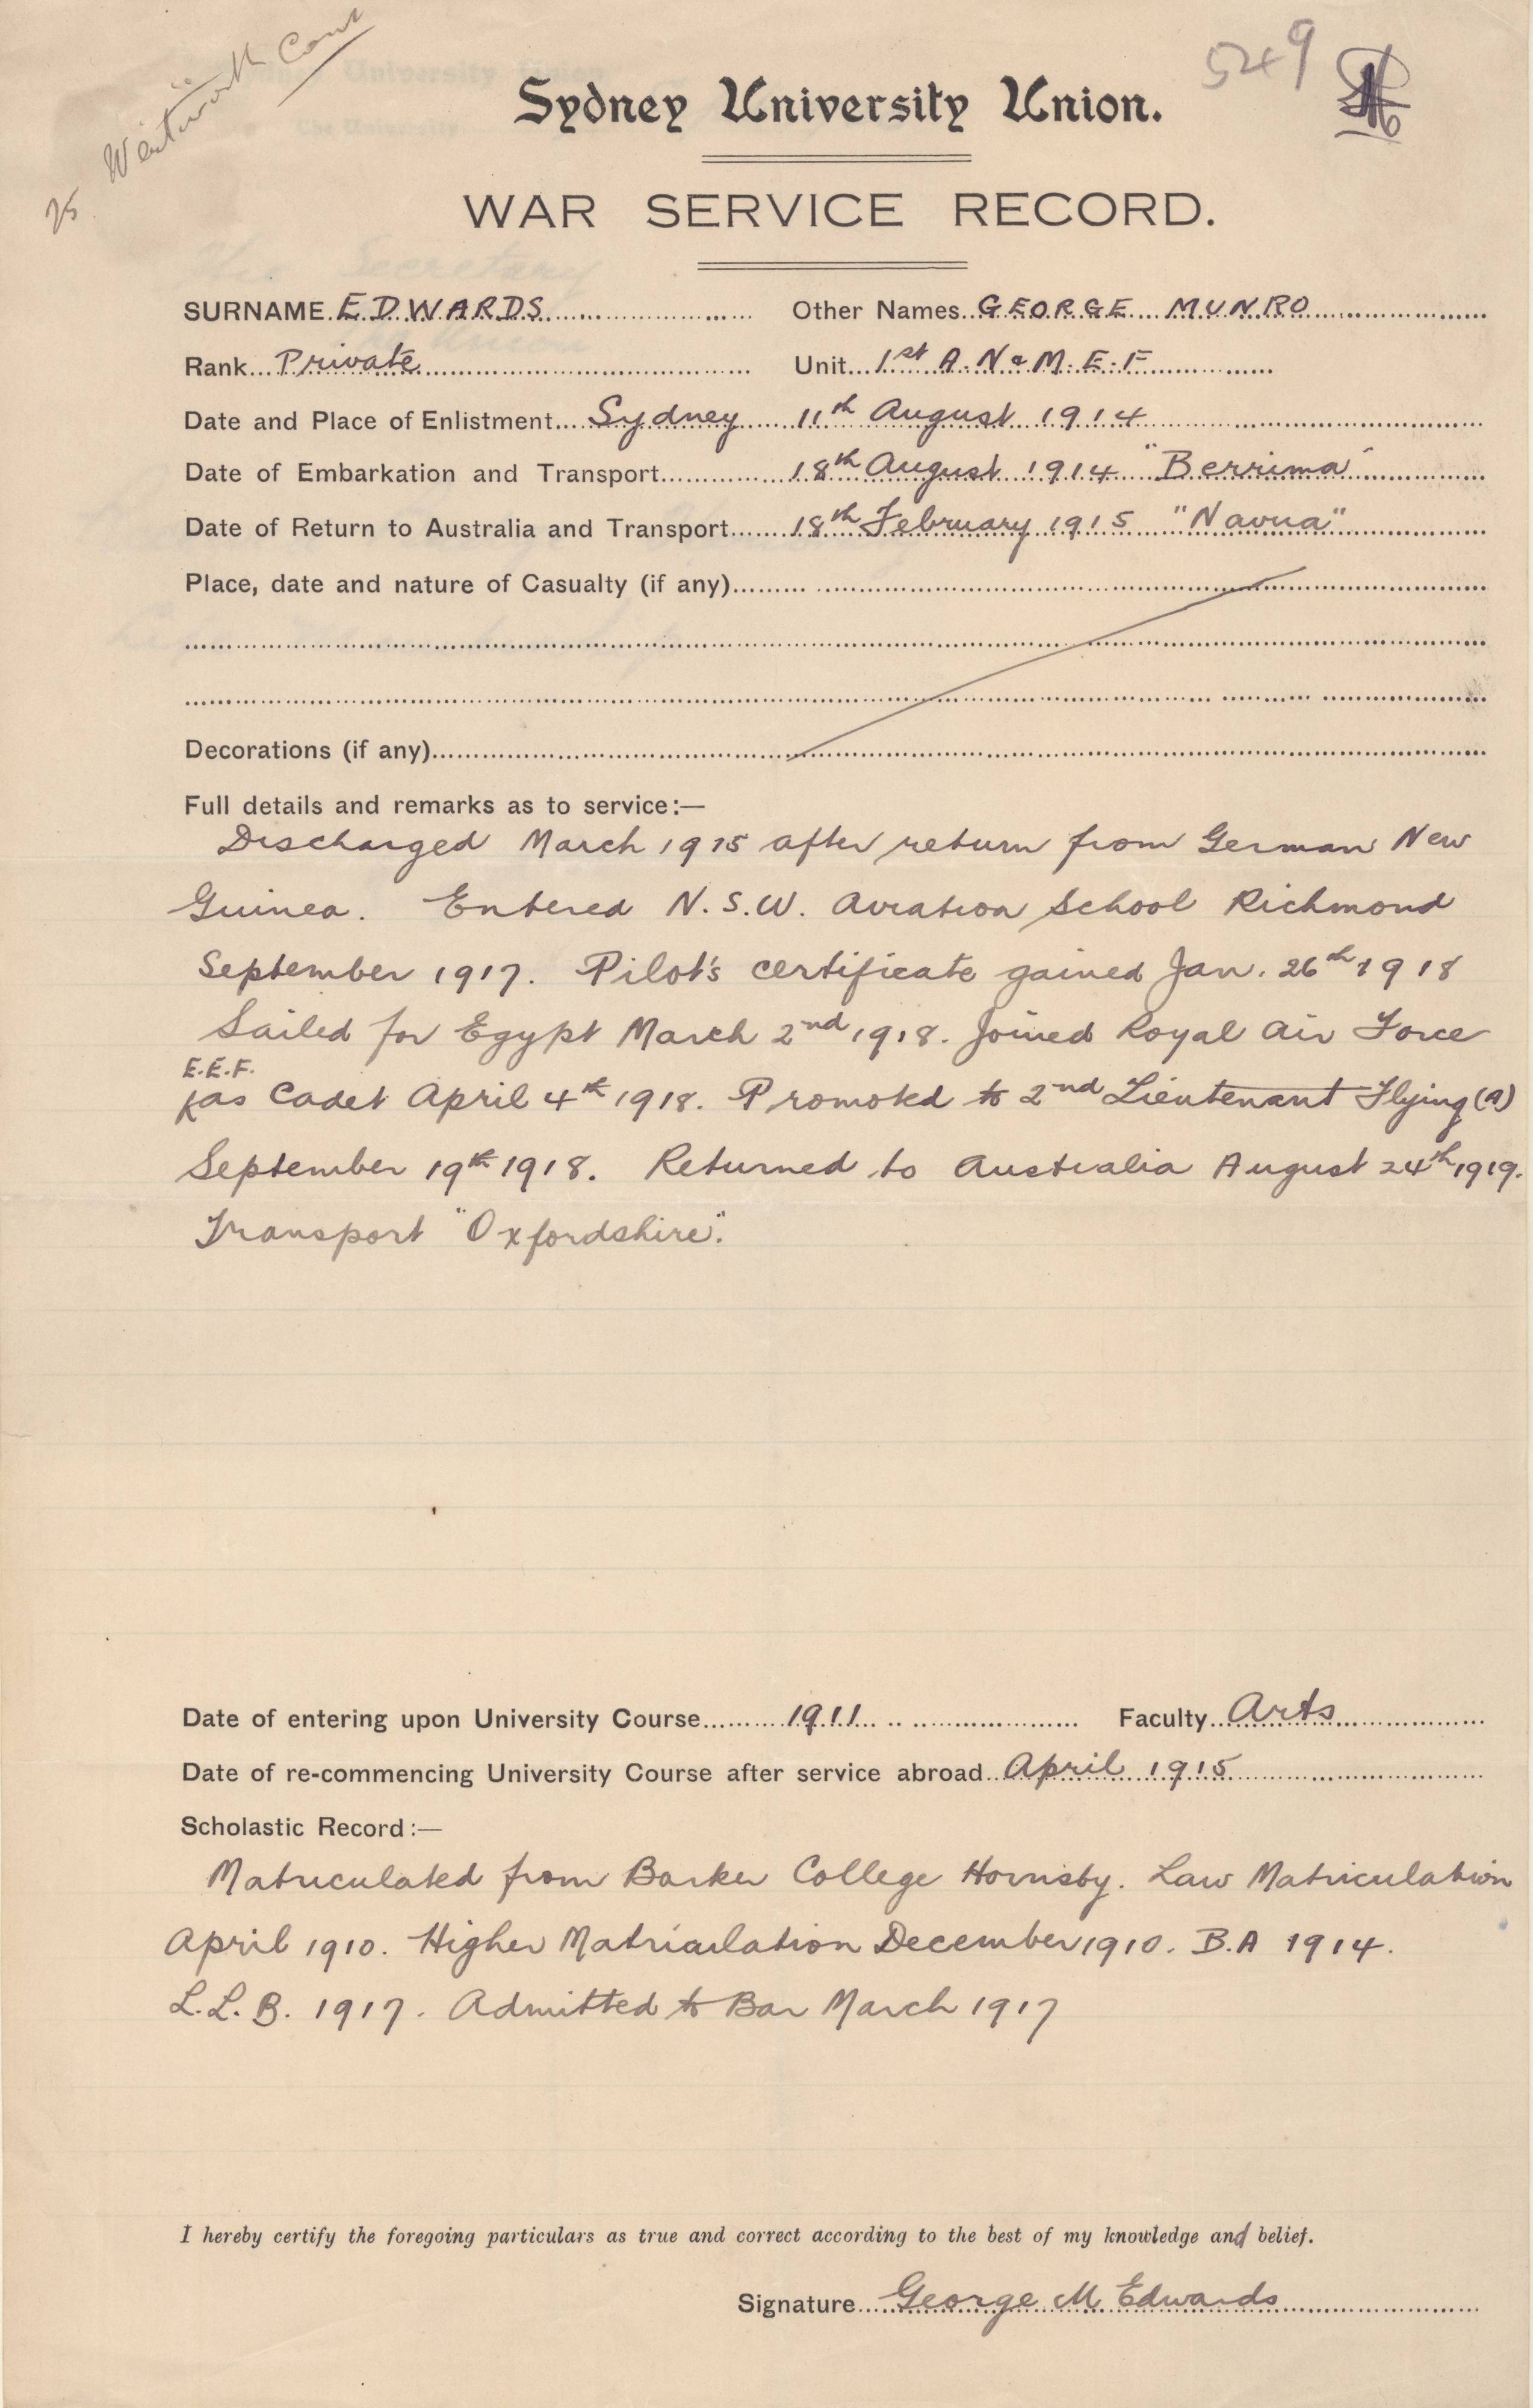 75 Wentworth Court
549
Sydney University Union.
WAR SERVICE RECORD.
SURNAME EDWARDS Other Names GEORGE MUNRO
Rank Private Unit 1st A.N & M.E.F
Date and Place of Enlistment Sydney 11th August 1914
Date of Embarkation and Transport 18th August 1914 "Berrima"
Date of Return to Australia and Transport 18th February 1915 "Navua"
Place, date and nature of Casualty (if any)
Decorations (if any)
Full details and remarks as to service:—
Discharged March 1915 after return from German New
Guinea. Entered N.S.W. Aviation School Richmond
September 1917. Pilot's certificate gained Jan. 26th 1918
Sailed for Egypt March 2nd 1918. Joined Royal Air Force
E.E.F.
as Cadet April 4th 1918. Promoted to 2nd Lieutenant Flying (A)
September 19th 1918. Returned to Australia August 24th 1919.
Transport "Oxfordshire".
Date of entering upon University Course 1911 Faculty Arts
Date of re-commencing University Course after service abroad April 1915
Scholastic Record:—
Matriculated from Barker College Hornsby. Law Matriculation
April 1910. Higher Matriculation December 1910. B.A 1914.
L.L.B. 1917. Admitted to Bar March 1917
I hereby certify the foregoing particulars as true and correct according to the best of my knowledge and belief.
Signature George M Edwards